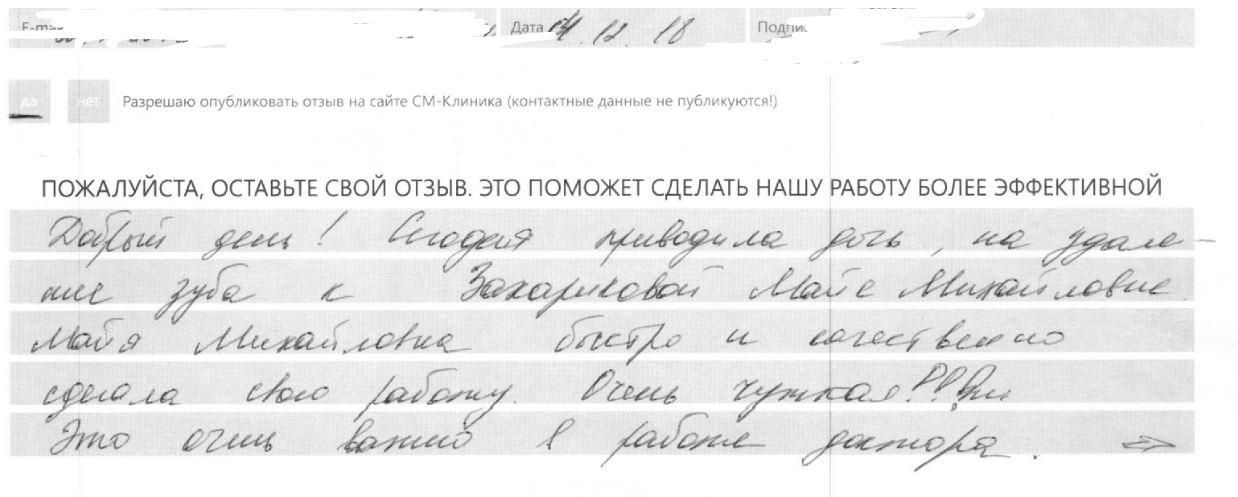 E-mail Дата 14.12.18 Подпис
да нет Разрешаю опубликовать отзыв на сайте СМ-Клиника (контактные данные не публикуются!)
ПОЖАЛУЙСТА, ОСТАВЬТЕ СВОЙ ОТЗЫВ. ЭТО ПОМОЖЕТ СДЕЛАТЬ НАШУ РАБОТУ БОЛЕЕ ЭФФЕКТИВНОЙ
Добрый день! Сегодня приводила дочь, на удале-
ние зуба к Захариковой Майе Михайловне.
Майя Михайловна быстро и качественно
сделала свою работу. Очень чуткая!!!
Это очень важно в работе доктора. ⇒